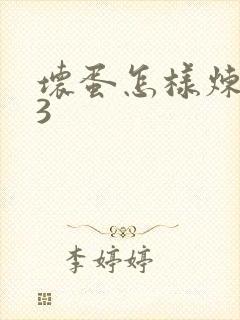 壞蛋怎樣煉
3
李婷婷